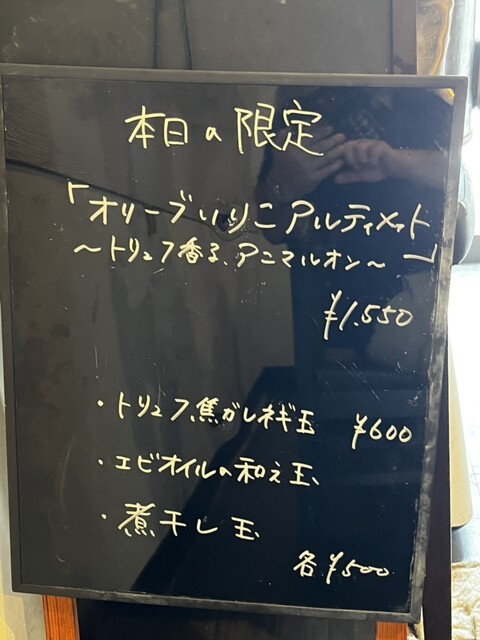 本日の限定
「オリーブいりこアルティメット
～トリュフ香る、アニマルオン～」
¥1.550
・トリュフ焦がしネギ玉 ¥600
・エビオイルの和え玉
・煮干し玉
各¥500